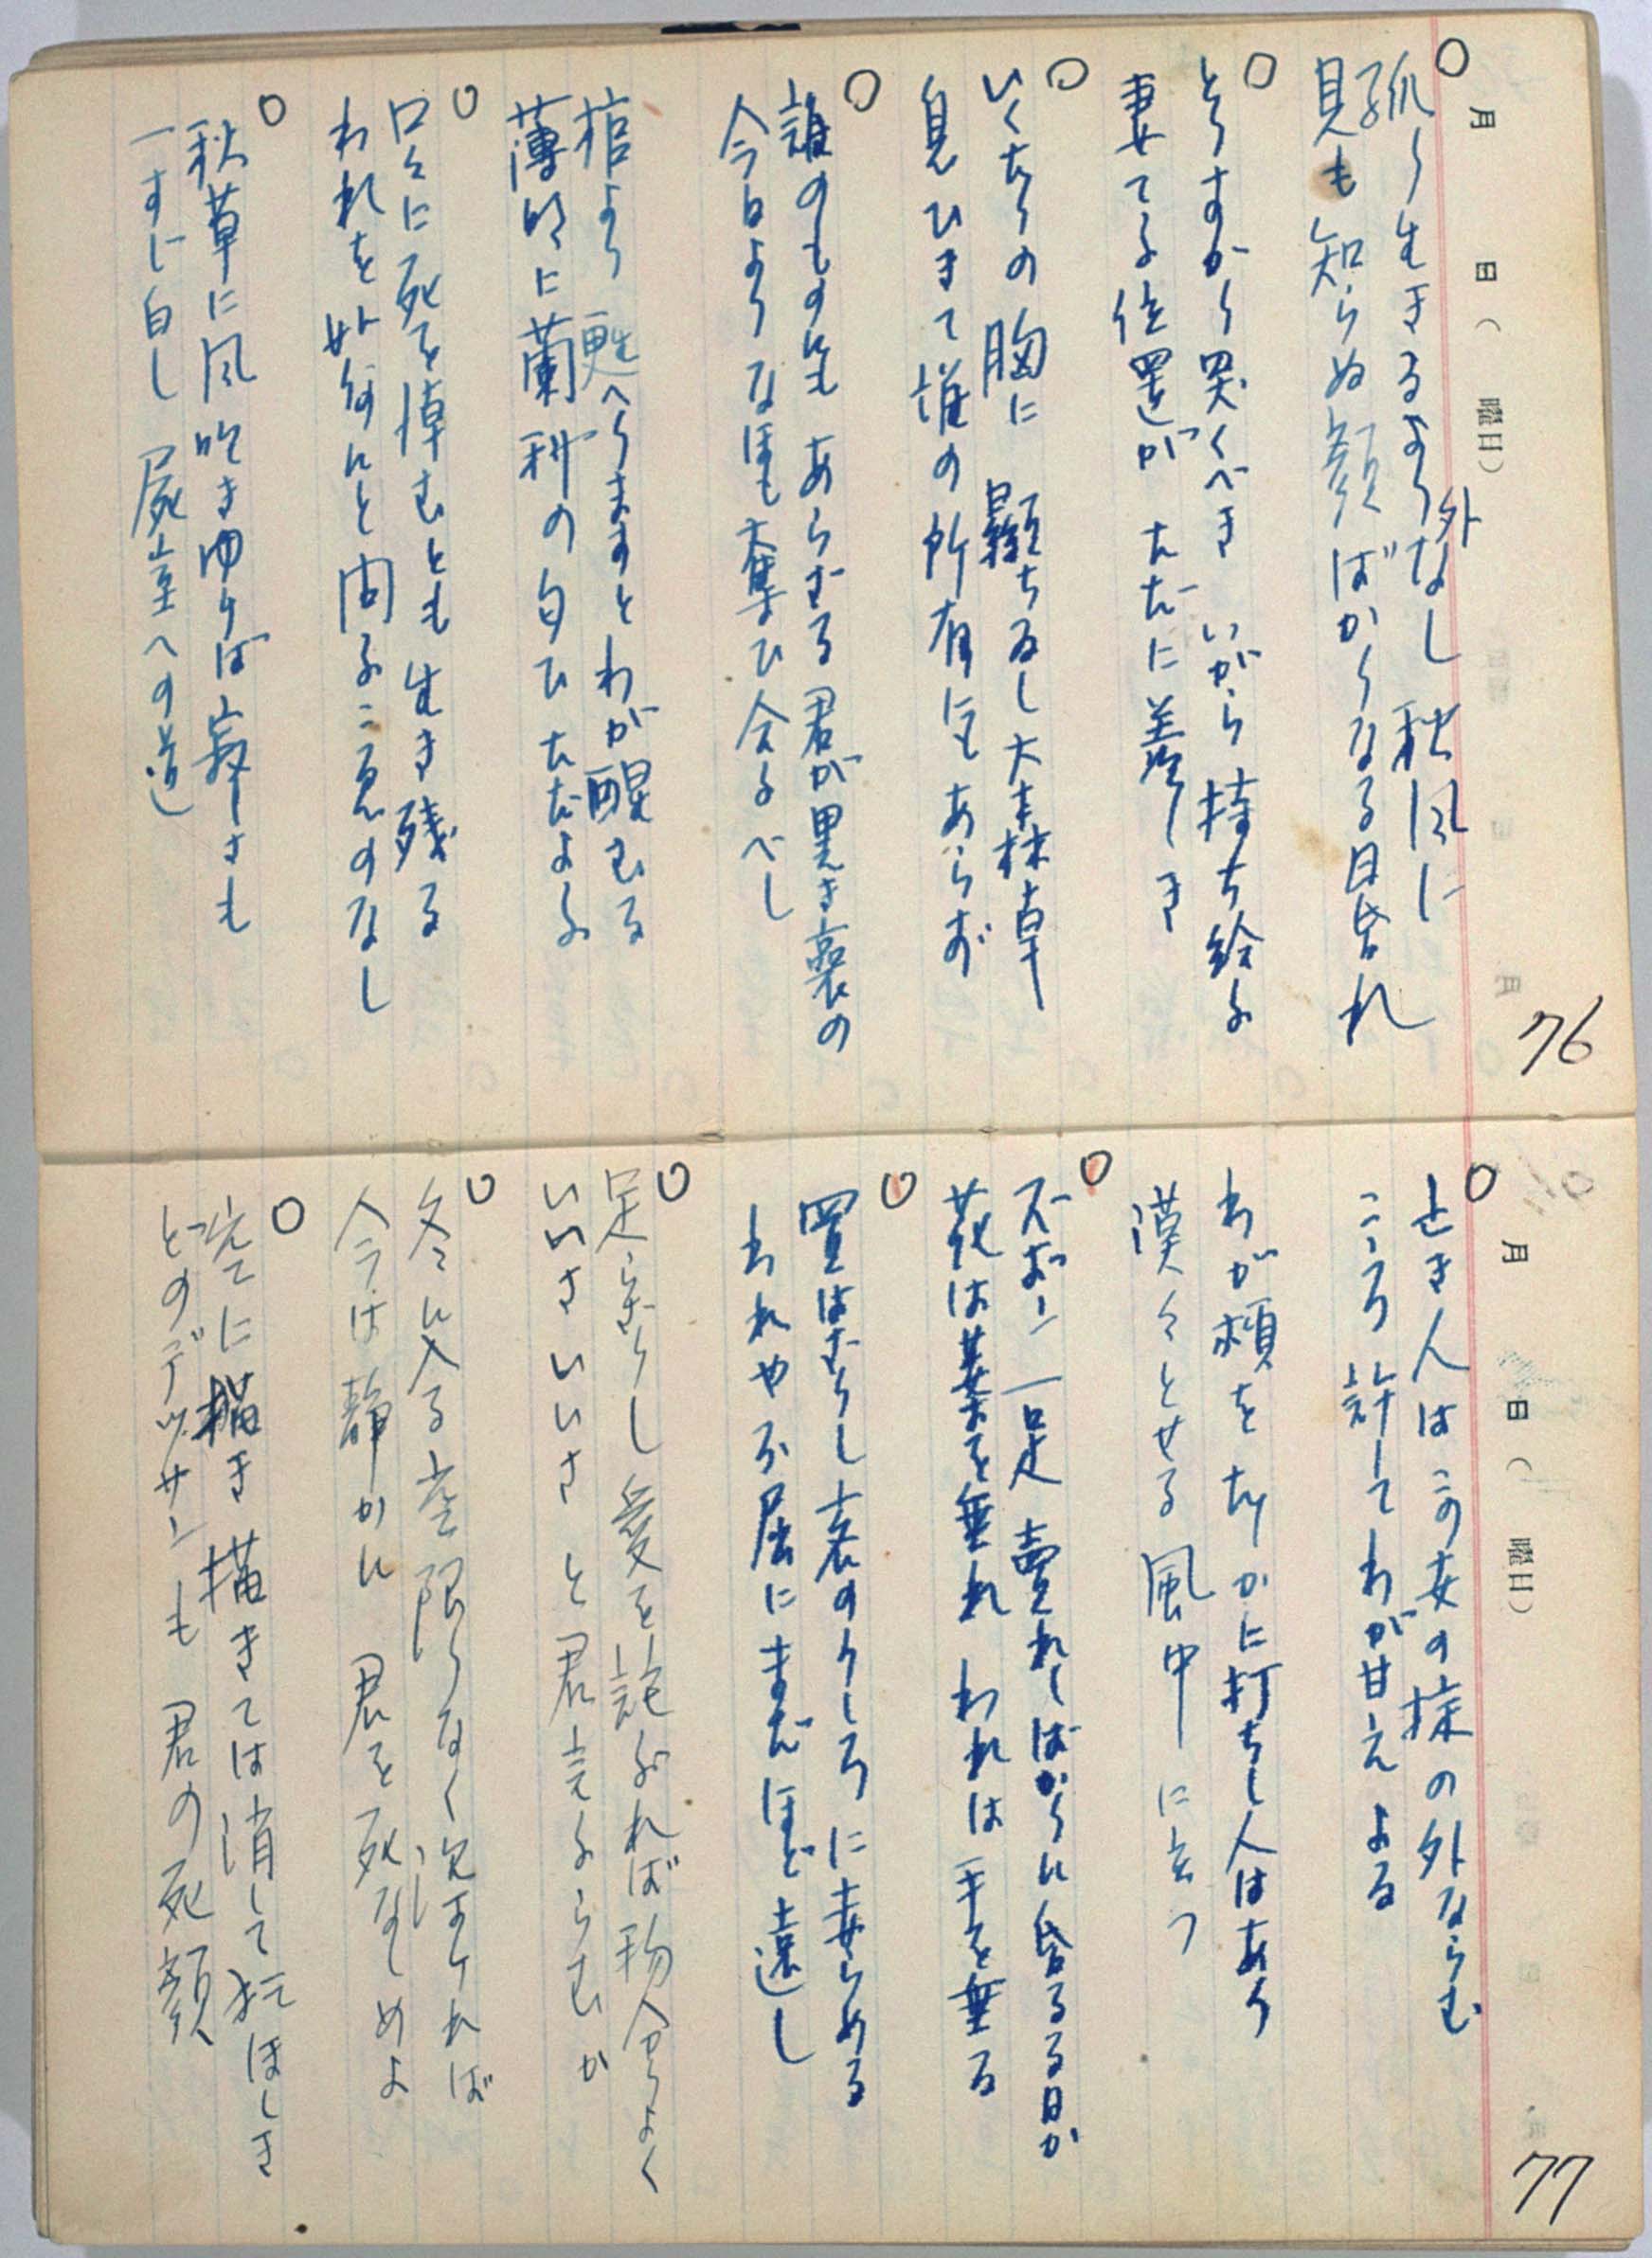 76
月 日( 曜日)
○
孤り生きるより外なし 秋風に
見も知らぬ顔ばかりなる日昏れ
○
とりすがり哭くべきいがら持ち給ふ
妻てる位置がただに羨しき
○
いくたりの胸に顕ちゐし大森林卓
息ひきて誰の所有にもあらず
○
誰のものにもあらざる君が黒き裏の
今日よりなほも奪ひ合ふべし
棺より甦へりますとわが醒むる
薄明に蘭科の匂ひただよふ
○
口々に死を悼むとも生き残る
われを如何にと問ふこゑのなし
○
秋草に風吹きゆけば寂しさも
一すじ白し 屍室への道
77
月 日( 曜日)
○
亡き人はこの女の抹の外ならむ
こころ許してわが甘えよる
わが頬をたしかに打ちし人はあり
漠々とせる風中に立つ
○
ズボン一足 売れしばかりに昏るる日か
花は葉を垂れ われは手を垂る
○
置はむりし 表のうしろに妻らめる
われや不屈にまだほど遠し
○
足らざりし愛を詫ぶれば物分りよく
いいさ いいさ と君言ふらむか
○
冬に入る空限りなく次ましければ
今は静かに 君を死なしめよ
○
凭てに描き 描きては消して
どのデッサンも 君の死顔